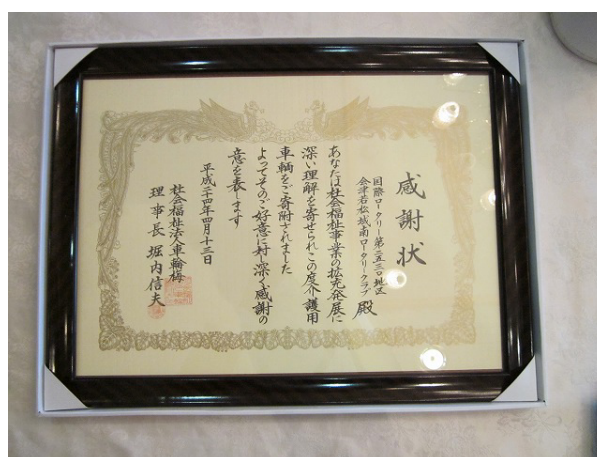 感謝状
国際ロータリー第二五三〇地区
会津若松城南ロータリークラブ 殿
あなたは社会福祉事業の拡充発展に
深い理解を寄せられこの度介護用
車輌をご寄附されました
よってそのご好意に対し深く感謝の
意を表します
平成二十四年四月十三日
社会福祉法人車輪梅
理事長 堀内信夫